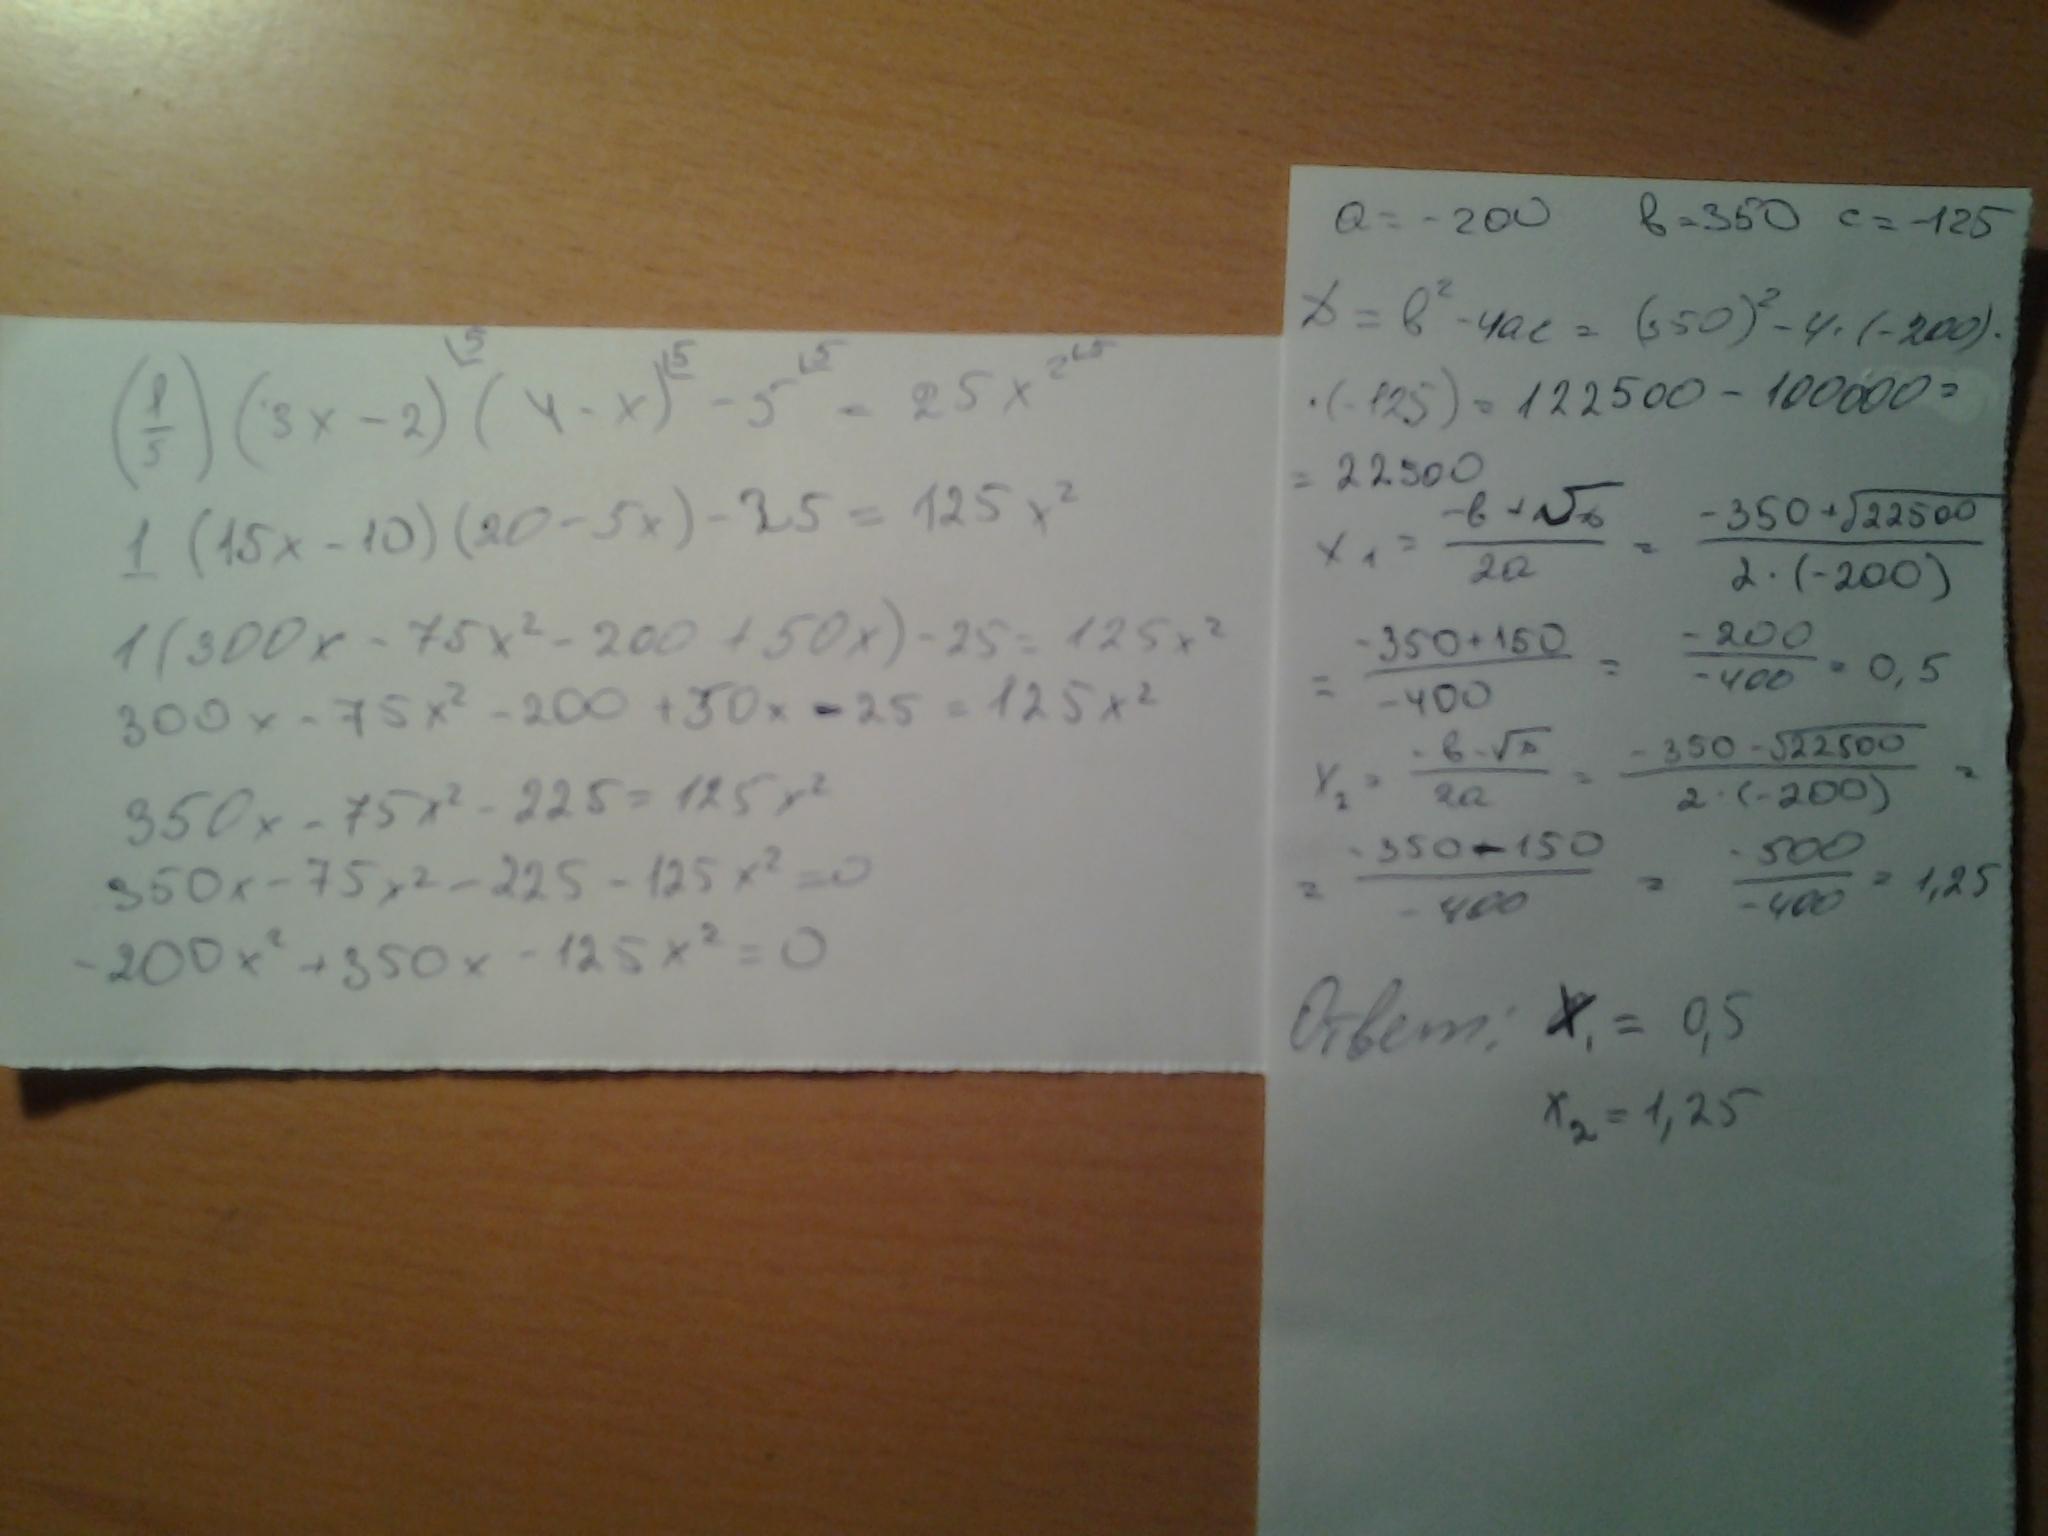 (1/5) (3x - 2)⌊5 (4 - x)⌊5 - 5⌊5 = 25x²⌊5
1 (15x - 10)(20 - 5x) - 25 = 125x²
1(300x - 75x² - 200 + 50x) - 25 = 125x²
300x - 75x² - 200 + 50x - 25 = 125x²
350x - 75x² - 225 = 125x²
350x - 75x² - 225 - 125x² = 0
-200x² + 350x - 125x² = 0
a = -200 в = 350 c = -125
D = в² - 4ac = (350)² - 4·(-200)·
·(-125) = 122500 - 100000 =
= 22500
x₁ = (-в + √D)/(2a) = (-350 + √22500)/(2·(-200))
= (-350 + 150)/(-400) = (-200)/(-400) = 0,5
x₂ = (-в - √D)/(2a) = (-350 - √22500)/(2·(-200)) =
= (-350 - 150)/(-400) = (-500)/(-400) = 1,25
Ответ: x₁ = 0,5
x₂ = 1,25